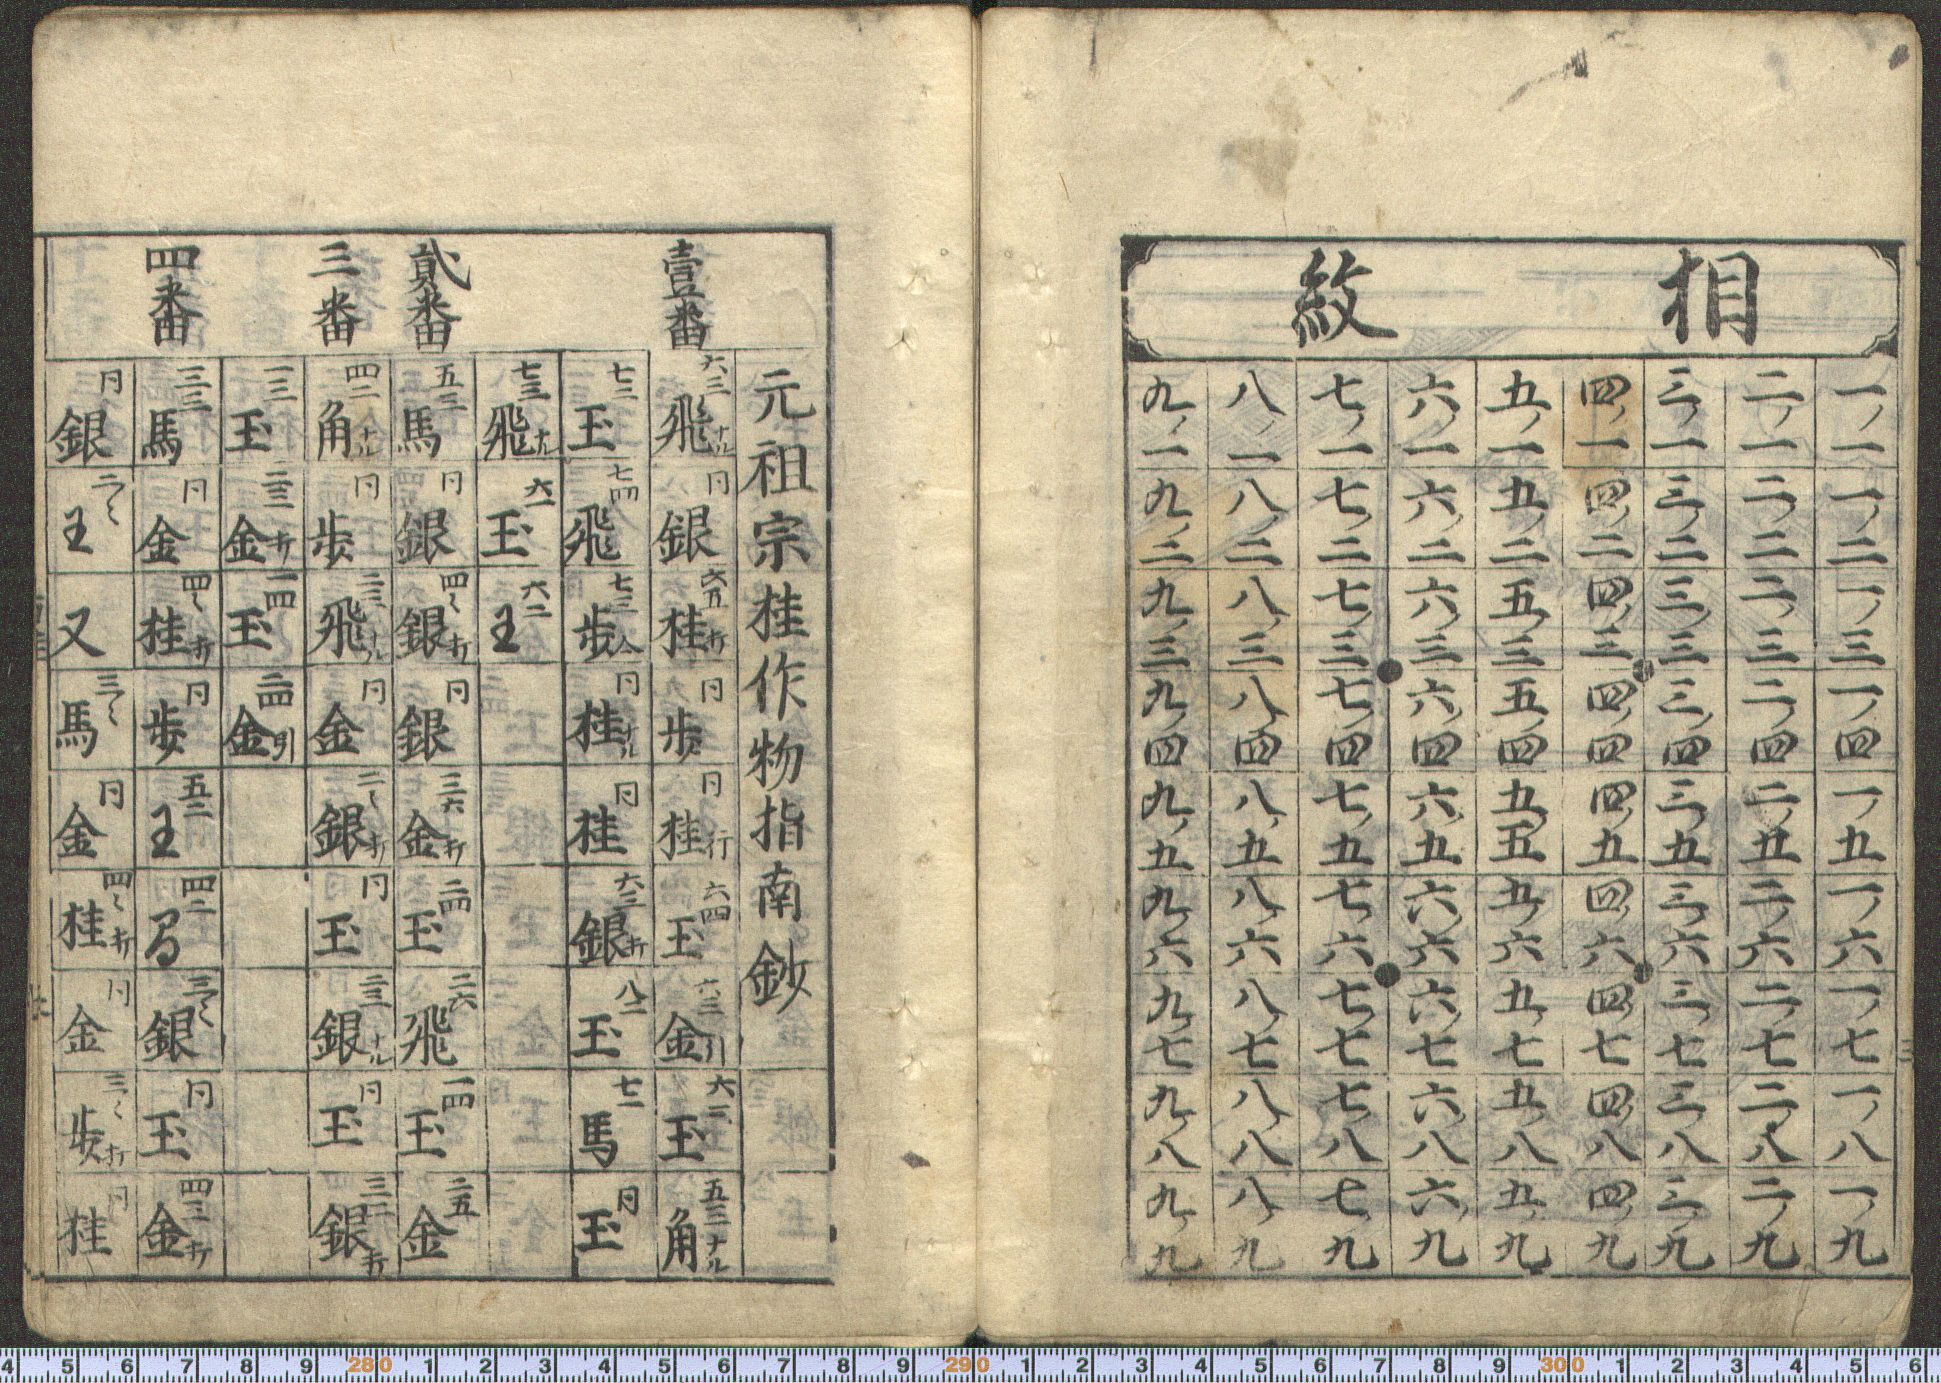 相紋
一ノ一 一ノ二 一ノ三 一ノ四 一ノ五 一ノ六 一ノ七 一ノ八 一ノ九
二ノ一 二ノ二 二ノ三 二ノ四 二ノ五 二ノ六 二ノ七 二ノ八 二ノ九
三ノ一 三ノ二 三ノ三 三ノ四 三ノ五 三ノ六 三ノ七 三ノ八 三ノ九
四ノ一 四ノ二 四ノ三 四ノ四 四ノ五 四ノ六 四ノ七 四ノ八 四ノ九
五ノ一 五ノ二 五ノ三 五ノ四 五ノ五 五ノ六 五ノ七 五ノ八 五ノ九
六ノ一 六ノ二 六ノ三 六ノ四 六ノ五 六ノ六 六ノ七 六ノ八 六ノ九
七ノ一 七ノ二 七ノ三 七ノ四 七ノ五 七ノ六 七ノ七 七ノ八 七ノ九
八ノ一 八ノ二 八ノ三 八ノ四 八ノ五 八ノ六 八ノ七 八ノ八 八ノ九
九ノ一 九ノ二 九ノ三 九ノ四 九ノ五 九ノ六 九ノ七 九ノ八 九ノ九
三
元祖宗桂作物指南鈔
壹番
六三飛ナル 同銀 六五桂打 同歩 同桂行 六四玉 六三金引 六二玉 五三角ナル
七二玉 七四飛 七三歩入 同桂ナル 同桂 六三銀打 八二玉 七二馬 同玉
七三飛ナル 六一玉 六二王
貳番
五三馬 同銀 四々銀打 同銀 三六金打 二四玉 二六飛 一四玉 二五金
三番
四二角ナル 同歩 三三飛ナル 同金 二々銀打 同玉 三三銀ナル 同玉 三二銀打
一三玉 二三金打 一四玉 二四金引
四番
三三馬 同金 四々桂打 同歩 五二王 四二馬 三々銀 同玉 四三金打
同銀 二々王 又 三々馬 同金 四々桂打 同金 三々歩打 同桂